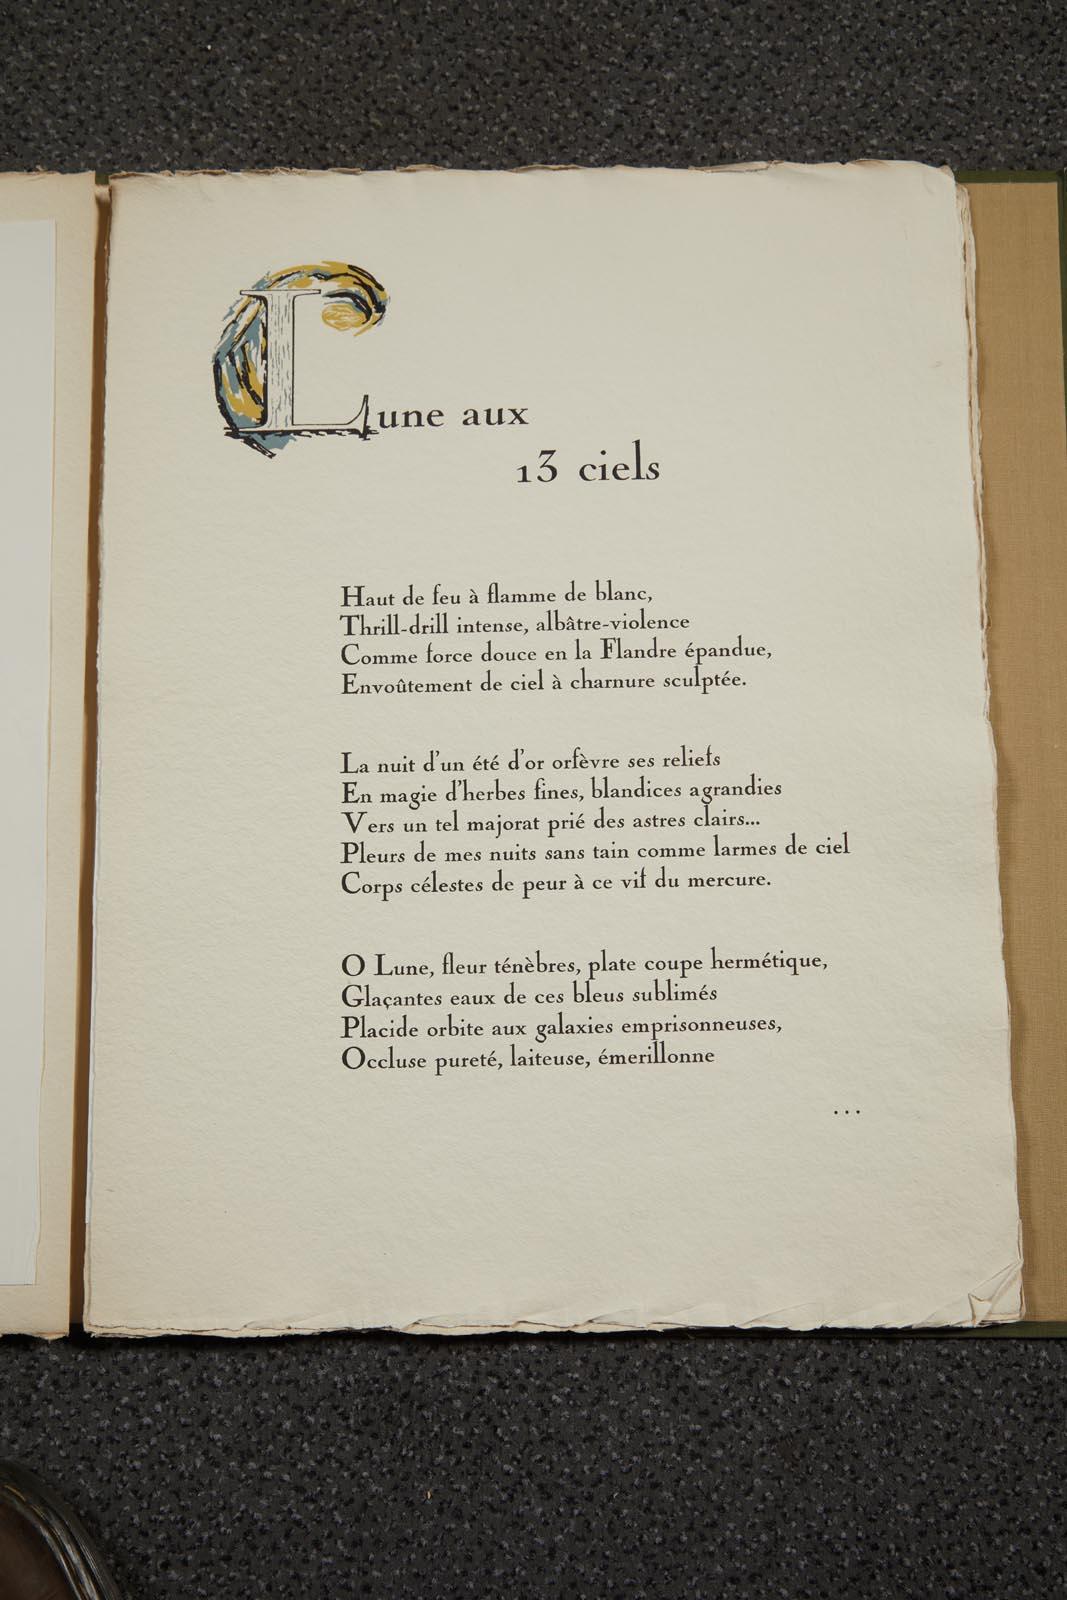 Lune aux
13 ciels
Haut de feu à flamme de blanc,
Thrill-drill intense, albâtre-violence
Comme force douce en la Flandre épandue,
Envoûtement de ciel à charnure sculptée.
La nuit d'un été d'or orfèvre ses reliefs
En magie d'herbes fines, blandices agrandies
Vers un tel majorat prié des astres clairs...
Pleurs de mes nuits sans tain comme larmes de ciel
Corps célestes de peur à ce vif du mercure.
O Lune, fleur ténèbres, plate coupe hermétique,
Glaçantes eaux de ces bleus sublimés
Placide orbite aux galaxies emprisonneuses,
Occluse pureté, laiteuse, émerillonne
...